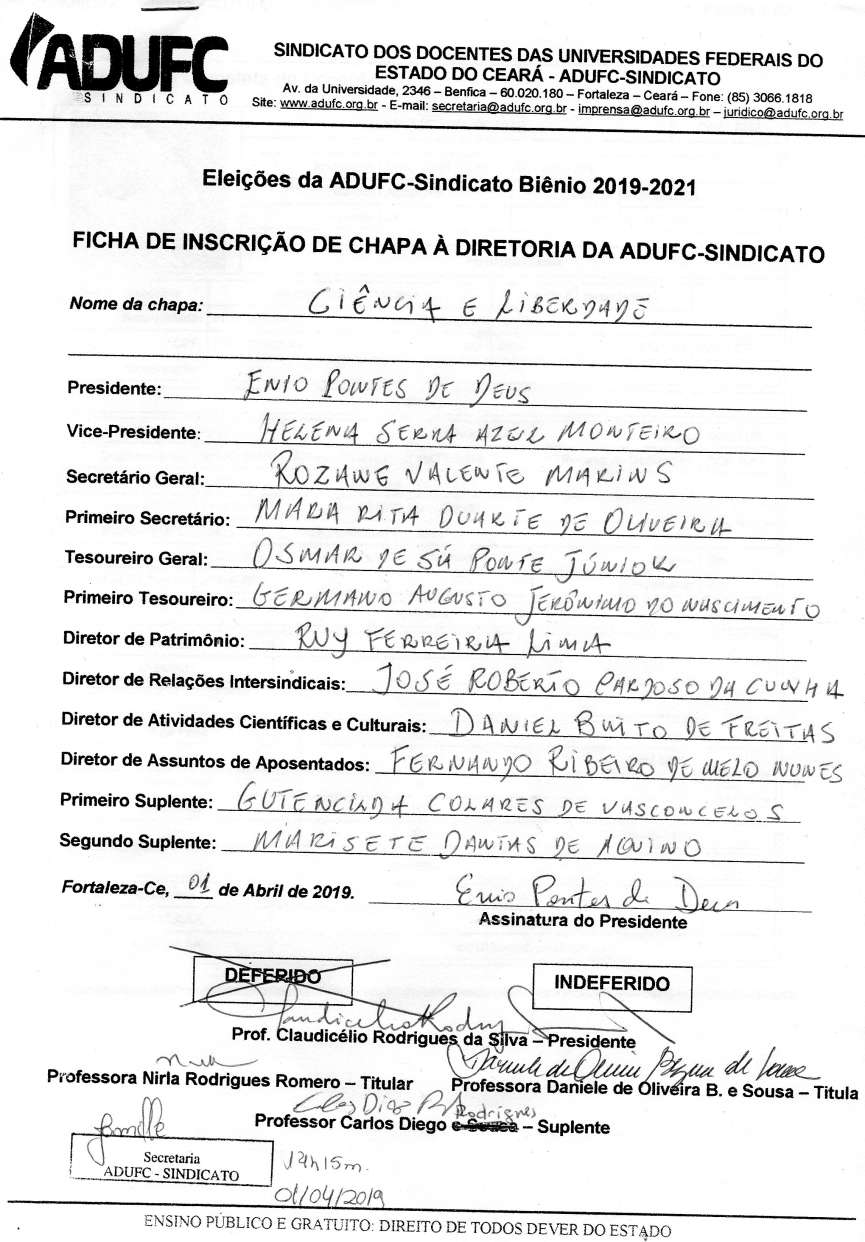 ADUFC
SINDICATO
SINDICATO DOS DOCENTES DAS UNIVERSIDADES FEDERAIS DO
ESTADO DO CEARÁ - ADUFC-SINDICATO
Av. da Universidade, 2346 – Benfica – 60.020.180 – Fortaleza – Ceará – Fone: (85) 3066.1818
Site: www.adufc.org.br - E-mail: secretaria@adufc.org.br - imprensa@adufc.org.br – juridico@adufc.org.br
Eleições da ADUFC-Sindicato Biênio 2019-2021
FICHA DE INSCRIÇÃO DE CHAPA À DIRETORIA DA ADUFC-SINDICATO
Nome da chapa: CIÊNCIA E LIBERDADE
Presidente: ENIO PONTES DE DEUS
Vice-Presidente: HELENA SERRA AZUL MONTEIRO
Secretário Geral: ROZANE VALENTE MARINS
Primeiro Secretário: MARIA RITA DUARTE DE OLIVEIRA
Tesoureiro Geral: OSMAR DE SÁ PONTE JÚNIOR
Primeiro Tesoureiro: GERMANO AUGUSTO JERÔNIMO DO NASCIMENTO
Diretor de Patrimônio: RUY FERREIRA LIMA
Diretor de Relações Intersindicais: JOSÉ ROBERTO CARDOSO DA CUNHA
Diretor de Atividades Científicas e Culturais: DANIEL BRITO DE FREITAS
Diretor de Assuntos de Aposentados: FERNANDO RIBEIRO DE MELO NUNES
Primeiro Suplente: COLARES DE VASCONCELOS
Segundo Suplente: MARISETE DANTAS DE AQUINO
Fortaleza-Ce, 01 de Abril de 2019. Enio Pontes de Deus
Assinatura do Presidente
DEFERIDO INDEFERIDO
Claudicélio Rodrigues
Prof. Claudicélio Rodrigues da Silva – Presidente
Professora Nirla Rodrigues Romero – Titular Professora Daniele de Oliveira B. e Sousa – Titula
Rodrigues
Professor Carlos Diego e Sousa – Suplente
Secretaria
ADUFC - SINDICATO
14h15m.
01/04/2019
ENSINO PÚBLICO E GRATUITO: DIREITO DE TODOS DEVER DO ESTADO